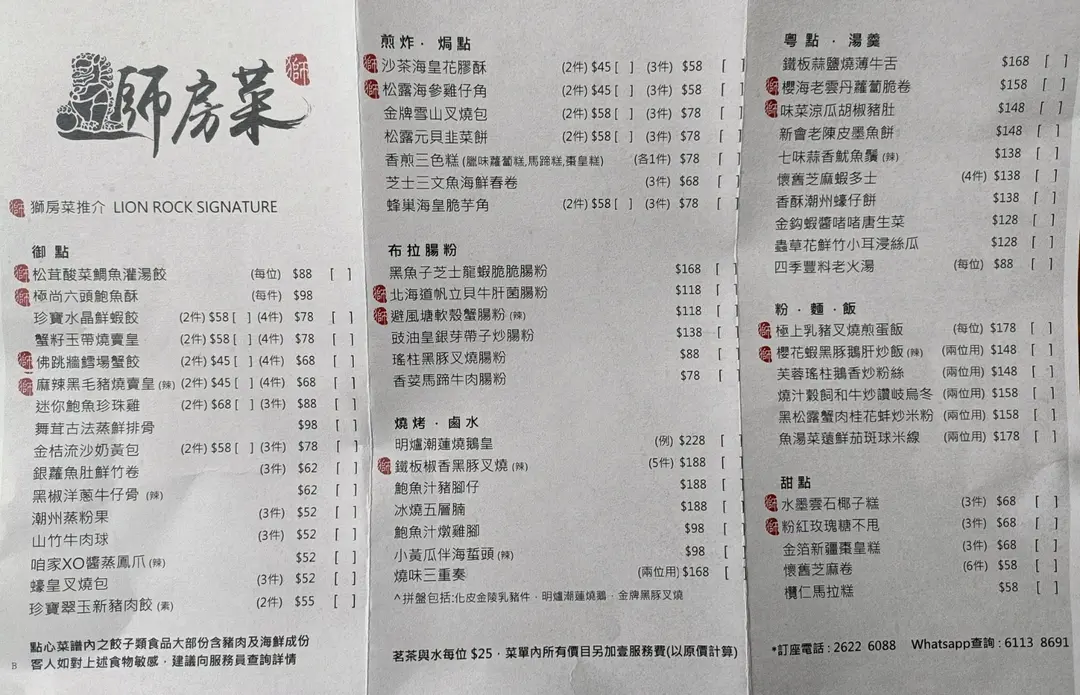 師房菜
獅
獅 獅房菜推介 LION ROCK SIGNATURE
御點
獅 松茸酸菜鯛魚灌湯餃 (每位) $88 [ ]
獅 極尚六頭鮑魚酥 (每件) $98
珍寶水晶鮮蝦餃 (2件) $58 [ ] (4件) $78 [ ]
蟹籽玉帶燒賣皇 (2件) $58 [ ] (4件) $78 [ ]
獅 佛跳牆鱈場蟹餃 (2件) $45 [ ] (4件) $68 [ ]
獅 麻辣黑毛豬燒賣皇 (辣) (2件) $45 [ ] (4件) $68 [ ]
迷你鮑魚珍珠雞 (2件) $68 [ ] (3件) $88 [ ]
舞茸古法蒸鮮排骨 $98 [ ]
金桔流沙奶黃包 (2件) $58 [ ] (3件) $78 [ ]
銀蘿魚肚鮮竹卷 (3件) $62 [ ]
黑椒洋蔥牛仔骨 (辣) $62 [ ]
潮州蒸粉果 (3件) $52 [ ]
山竹牛肉球 (3件) $52 [ ]
咱家XO醬蒸鳳爪 (辣) $52 [ ]
蠔皇叉燒包 (3件) $52 [ ]
珍寶翠玉新豬肉餃 (素) (2件) $55 [ ]
點心菜譜內之餃子類食品大部份含豬肉及海鮮成份
B 客人如對上述食物敏感，建議向服務員查詢詳情
煎炸．焗點
獅 沙茶海皇花膠酥 (2件) $45 [ ] (3件) $58 [ ]
獅 松露海參雞仔角 (2件) $45 [ ] (3件) $58 [ ]
金牌雪山叉燒包 (2件) $58 [ ] (3件) $78 [ ]
松露元貝韭菜餅 (2件) $58 [ ] (3件) $78 [ ]
香煎三色糕 (臘味蘿蔔糕,馬蹄糕,棗皇糕) (各1件) $78 [ ]
芝士三文魚海鮮春卷 (3件) $68 [ ]
蜂巢海皇脆芋角 (2件) $58 [ ] (3件) $78 [ ]
布拉腸粉
黑魚子芝士龍蝦脆脆腸粉 $168 [ ]
獅 北海道帆立貝牛肝菌腸粉 $118 [ ]
獅 避風塘軟殼蟹腸粉 (辣) $118 [ ]
豉油皇銀芽帶子炒腸粉 $138 [ ]
瑤柱黑豚叉燒腸粉 $88 [ ]
香荽馬蹄牛肉腸粉 $78 [ ]
燒烤．鹵水
明爐潮蓮燒鵝皇 (例) $228 [ ]
獅 鐵板椒香黑豚叉燒 (辣) (5件) $188 [ ]
鮑魚汁豬腳仔 $188 [ ]
冰燒五層腩 $188 [ ]
鮑魚汁燉雞腳 $98 [ ]
小黃瓜伴海蜇頭 (辣) $98 [ ]
燒味三重奏 (兩位用) $168 [ ]
^拼盤包括:化皮金陵乳豬件．明爐潮蓮燒鵝．金牌黑豚叉燒
茗茶與水每位 $25，菜單內所有價目另加壹服務費(以原價計算)
粵點．湯羹
鐵板蒜鹽燒薄牛舌 $168 [ ]
獅 櫻海老雲丹蘿蔔脆卷 $158 [ ]
獅 味菜涼瓜胡椒豬肚 $148 [ ]
新會老陳皮墨魚餅 $148 [ ]
七味蒜香魷魚鬚 (辣) $138 [ ]
懷舊芝麻蝦多士 (4件) $138 [ ]
香酥潮州蠔仔餅 $138 [ ]
金鈎蝦醬啫啫唐生菜 $128 [ ]
蟲草花鮮竹小耳浸絲瓜 $128 [ ]
四季豐料老火湯 (每位) $88 [ ]
粉．麵．飯
獅 極上乳豬叉燒煎蛋飯 (每位) $178 [ ]
獅 櫻花蝦黑豚鵝肝炒飯 (辣) (兩位用) $148 [ ]
芙蓉瑤柱鵝香炒粉絲 (兩位用) $148 [ ]
燒汁穀飼和牛炒讚岐烏冬 (兩位用) $158 [ ]
黑松露蟹肉桂花蚌炒米粉 (兩位用) $158 [ ]
魚湯菜薳鮮茄斑球米線 (兩位用) $178 [ ]
甜點
獅 水墨雲石椰子糕 (3件) $68 [ ]
獅 粉紅玫瑰糖不甩 (3件) $68 [ ]
金箔新疆棗皇糕 (3件) $68 [ ]
懷舊芝麻卷 (6件) $58 [ ]
欖仁馬拉糕 $58 [ ]
*訂座電話 : 2622 6088 Whatsapp查詢 : 6113 8691